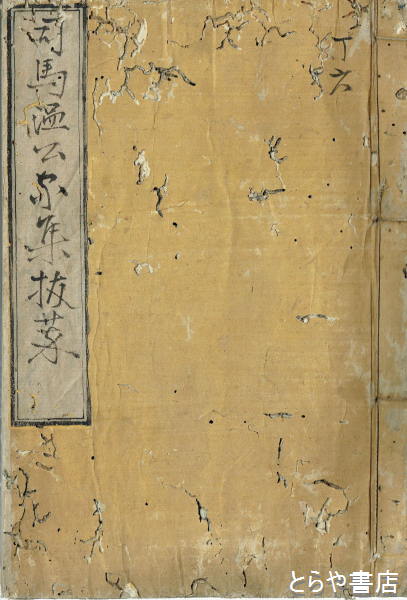 丁六
司馬温公家集抜萃
とらや書店